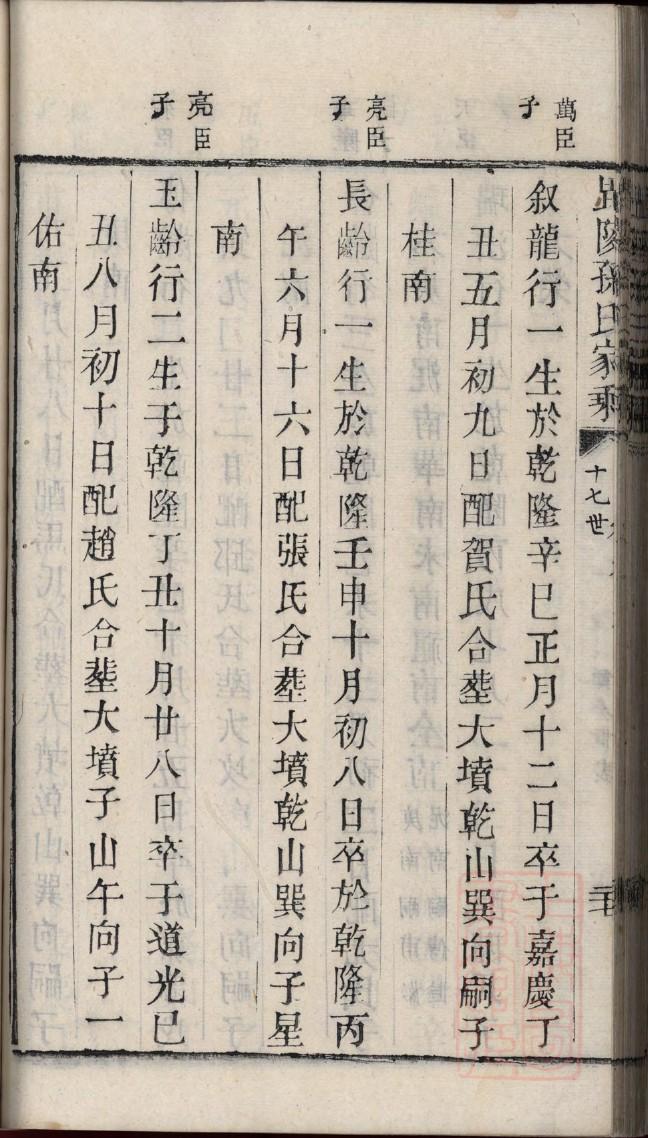 毘陵孫氏家乘
十七世
萬臣
子
叙龍行一生於乾隆辛巳正月十二日卒于嘉慶丁
丑五月初九日配賀氏合塟大墳乾山巽向嗣子
桂南
亮臣
子
長齡行一生於乾隆壬申十月初八日卒於乾隆丙
午六月十六日配張氏合塟大墳乾山巽向子星
南
亮臣
子
玉齡行二生于乾隆丁丑十月廿八日卒于道光巳
丑八月初十日配趙氏合塟大墳子山午向子一
佑南